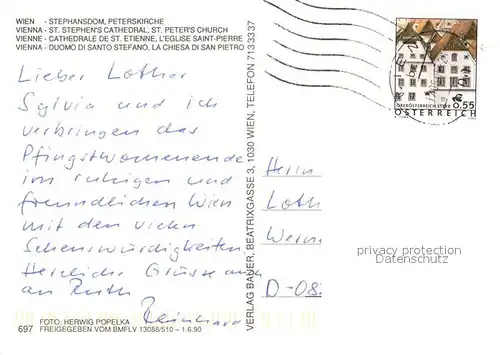 WIEN - STEPHANSDOM, PETERSKIRCHE
VIENNA - ST. STEPHEN'S CATHEDRAL, ST. PETER'S CHURCH
VIENNE - CATHEDRALE DE ST. ETIENNE, L'EGLISE SAINT-PIERRE
VIENNA - DUOMO DI SANTO STEFANO, LA CHIESA DI SAN PIETRO
Lieber Lothar
Sylvia und ich
verbringen das
Pfingstwochenende
im ruhigen und
freundlichen Wien
mit den vielen
Sehenswürdigkeiten
Herzliche Grüsse auch
an Ruth
Reinhard
697
FOTO: HERWIG POPELKA
FREIGEGEBEN VOM BMFLV 13088/510 – 1.6.90
VERLAG BAUER, BEATRIXGASSE 3, 1030 WIEN, TELEFON 7133337
0.55
ÖSTERREICH
Herrn
Loth
Wern
D-08
privacy protection
Datenschutz